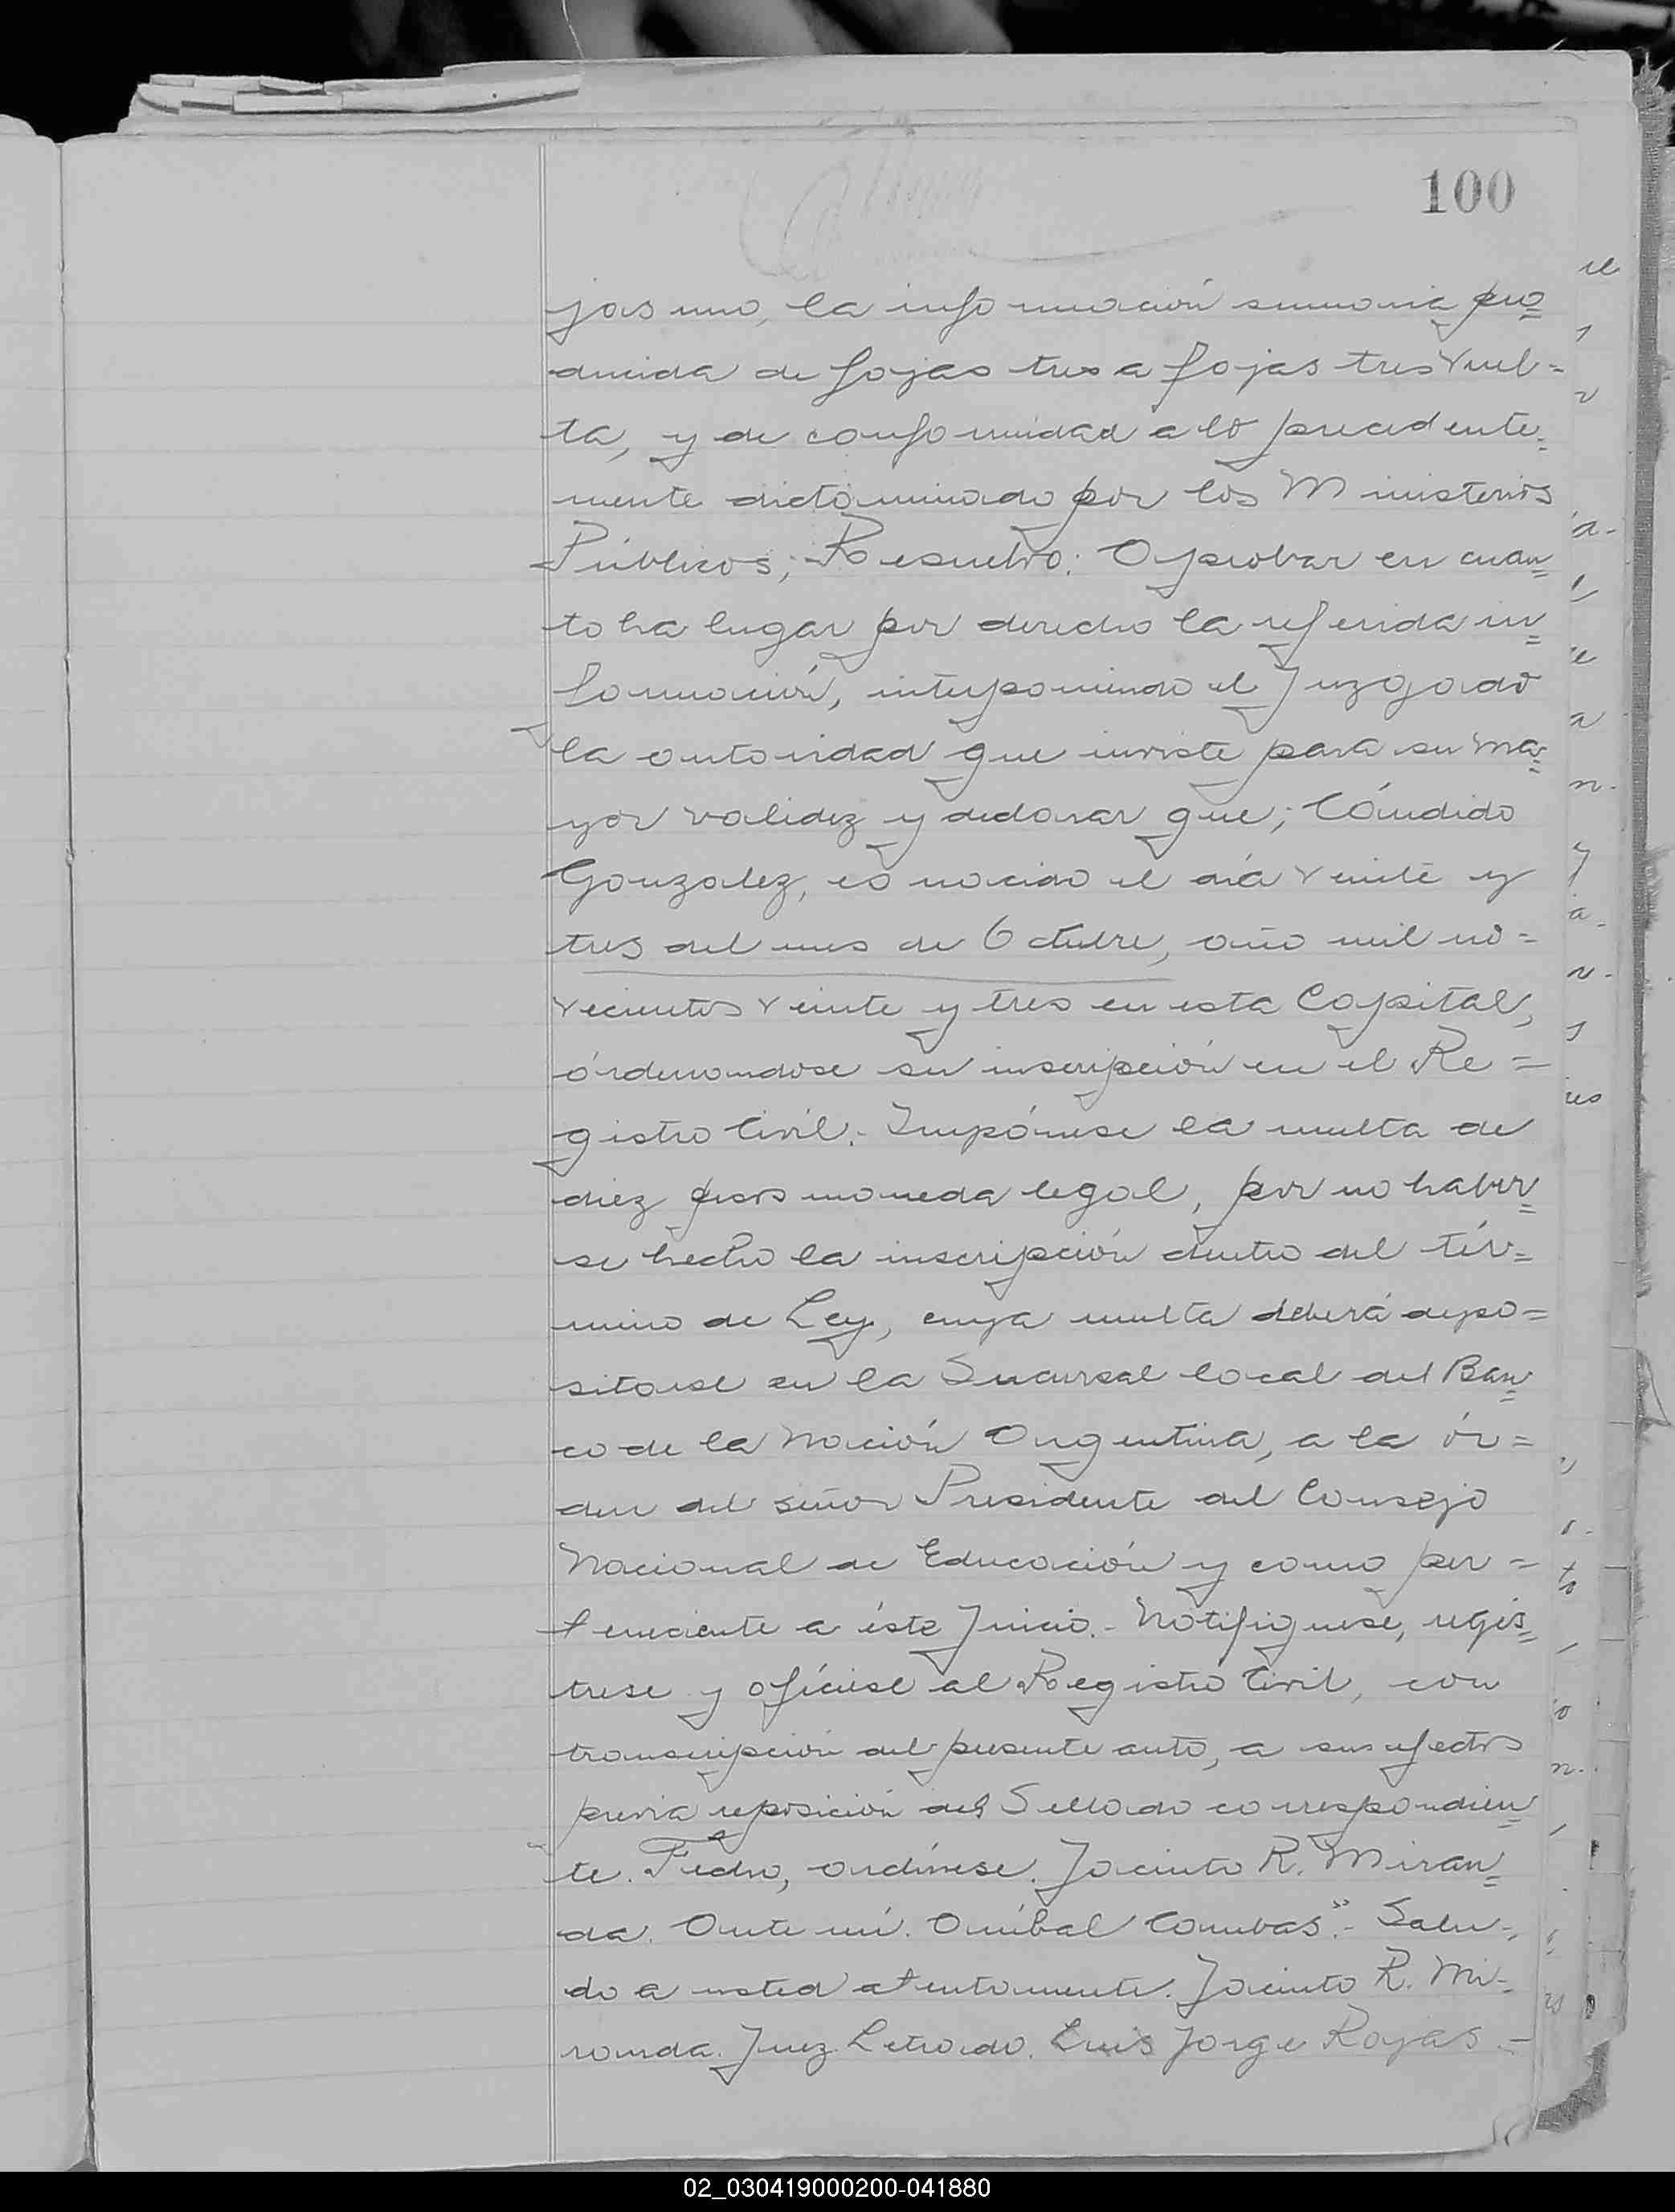 100
jas uno, la información sumaria pro=
ducida de fojas tres a fojas tres vuel=
ta, y de conformidad a lo precedente=
mente dictaminado por los Ministerios
Públicos; Resuelvo: Aprobar en cuan=
to ha lugar por derecho la referida in=
formación, interponiendo el Juzgado
la autoridad que inviste para su ma=
yor validez y declarar que; Cándido
Gonzalez, es nacido el día veinte y
tres del mes de Octubre, año mil no=
vecientos veinte y tres en esta Capital,
órdenandose su inscripción en el Re=
gistro Civil.- Impónese la multa de
diez pesos moneda legal, por no haber=
se hecho la inscripción dentro del tér=
mino de Ley, cuya multa deberá depo=
sitarse en la Sucursal local del Ban=
co de la Nación Argentina, a la ór=
den del señor Presidente del Consejo
Nacional de Educación y como per=
teneciente a éste Juicio.- Notifiquese, regís=
trese y ofíciese al Registro Civil, con
transcripción del presente auto, a sus efectos
previa reposición del Sellado correspondien=
te. Fecho, archívese. Jacinto R. Miran=
da. Ante mí. Aníbal Combas".- Salu=
do a usted atentamente. Jacinto R. Mi=
randa. Juez Letrado. Luis Jorge Rojas.-
02_030419000200-041880